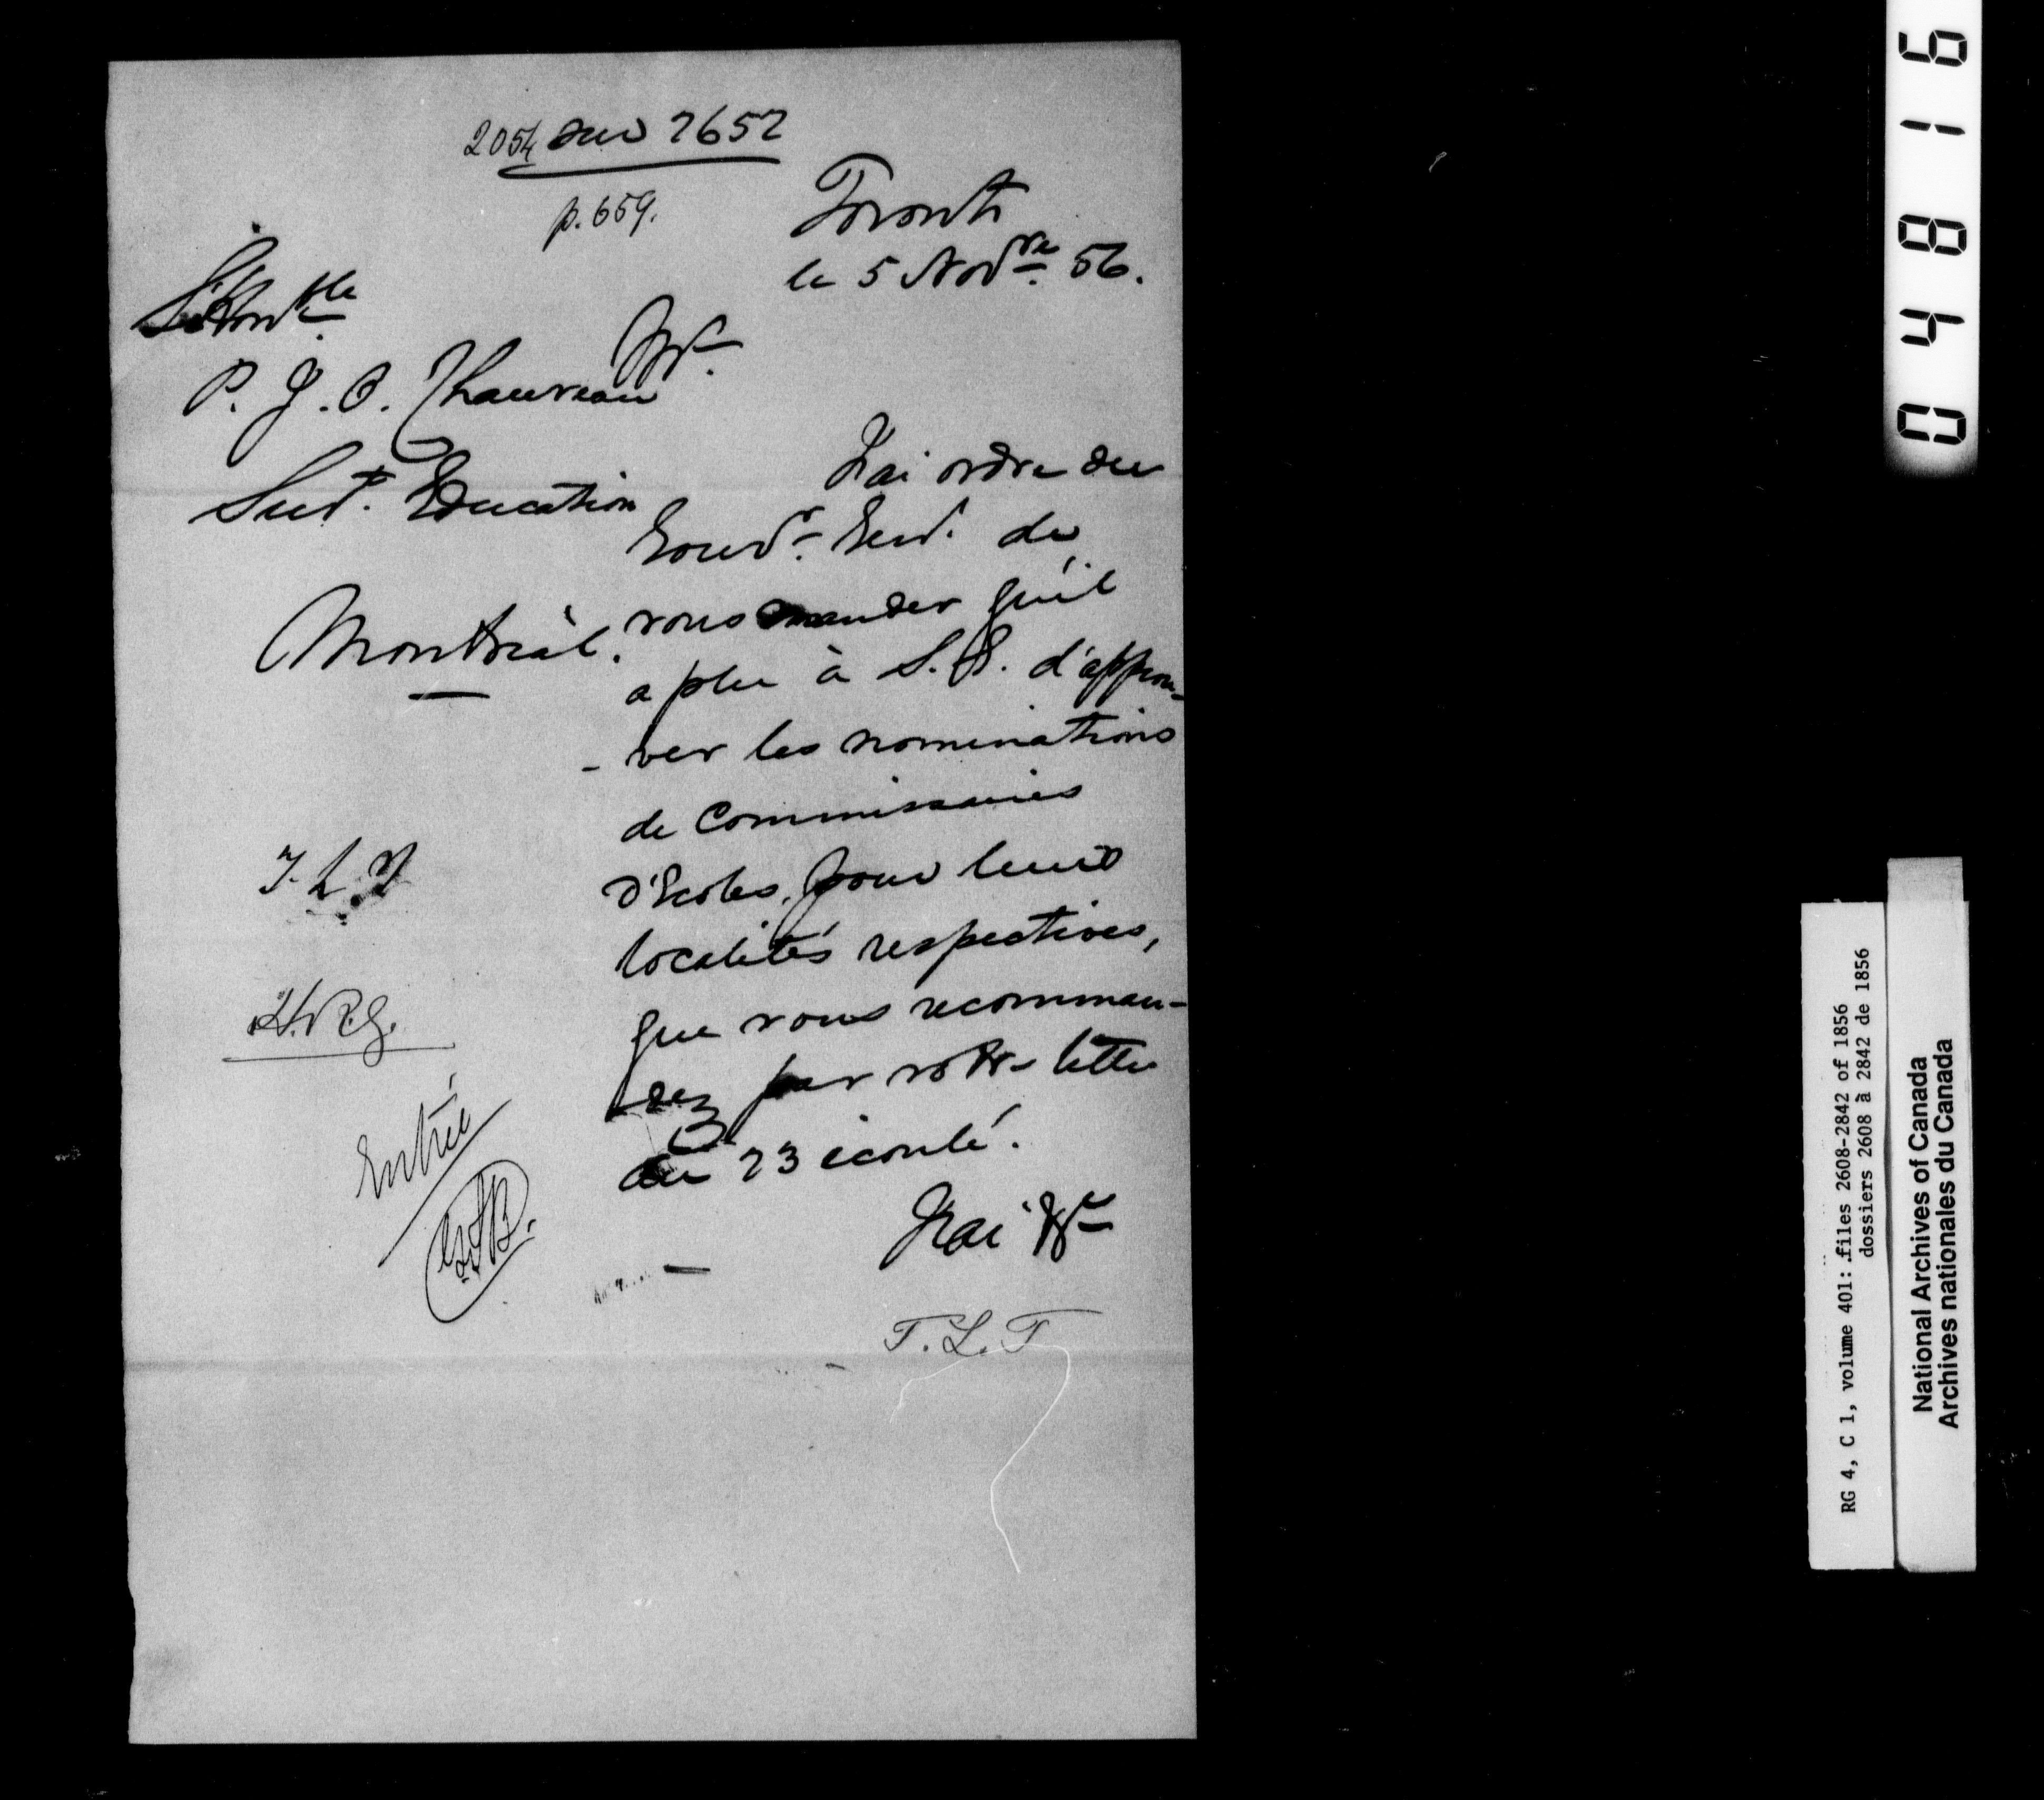 2054 sur 2652
p. 659.
Toronto
le 5 Novre 56.
L'Honble
P. J. O. Chauveau
Supt. Education
Montréal.
Mr.
J'ai ordre du
Gouvr. Genl. de
vous mander qu'il
a plu à S. E. d'approu-
-ver les nominations
de Commissaires
d'Ecoles, pour leurs
localités respectives,
que vous recomman-
dez par votre lettre
du 23 écoulé.
J'ai &c
T. L. T
T. L. T
Entrée
0 4 8 1 6
RG 4, C 1, volume 401: files 2608-2842 of 1856
dossiers 2608 à 2842 de 1856
National Archives of Canada
Archives nationales du Canada